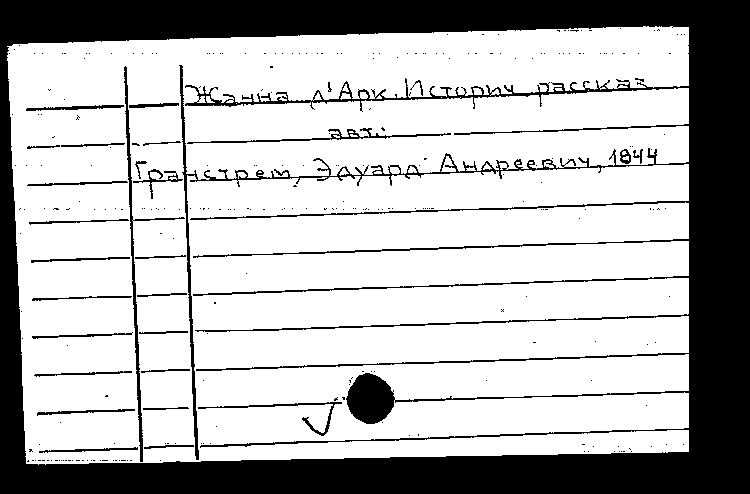 Жанна д'Арк. Историч. рассказ
авт.:
Гранстрем, Эдуард Андреевич, 1844